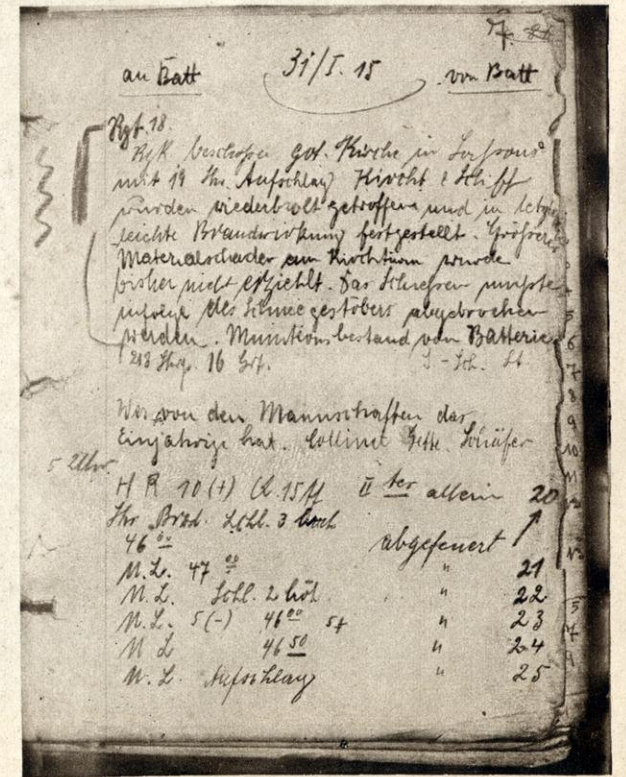 7.
31/I. 15
an Batt von Batt
Rgt. 18.
beschoss got. Kirche in Soissons
mit 19 Shr. Aufschlag Kirche & Schiff
wurden wiederholt getroffen und in
leichte Brandwirkung festgestellt. Grösserer
Materialschaden am Kirchturm wurde
bisher nicht erziehlt. Das Schiessen musste
infolge des Schneegestöbers abgebrochen
werden. Munitionsbestand von Batterie
213 16
Wer von den Mannschaften das
Einjährige hat. Collinet Schäfer
5 Uhr
H R 10 (+) II ter allein 20
3 hoch
46 00 abgefeuert
M. L. 47 00 " 21
M. L. Schl. 2 " 22
M. L. 5 (-) 46 00 5+ " 23
M L 46 50 " 24
M. L. Aufschlag " 25